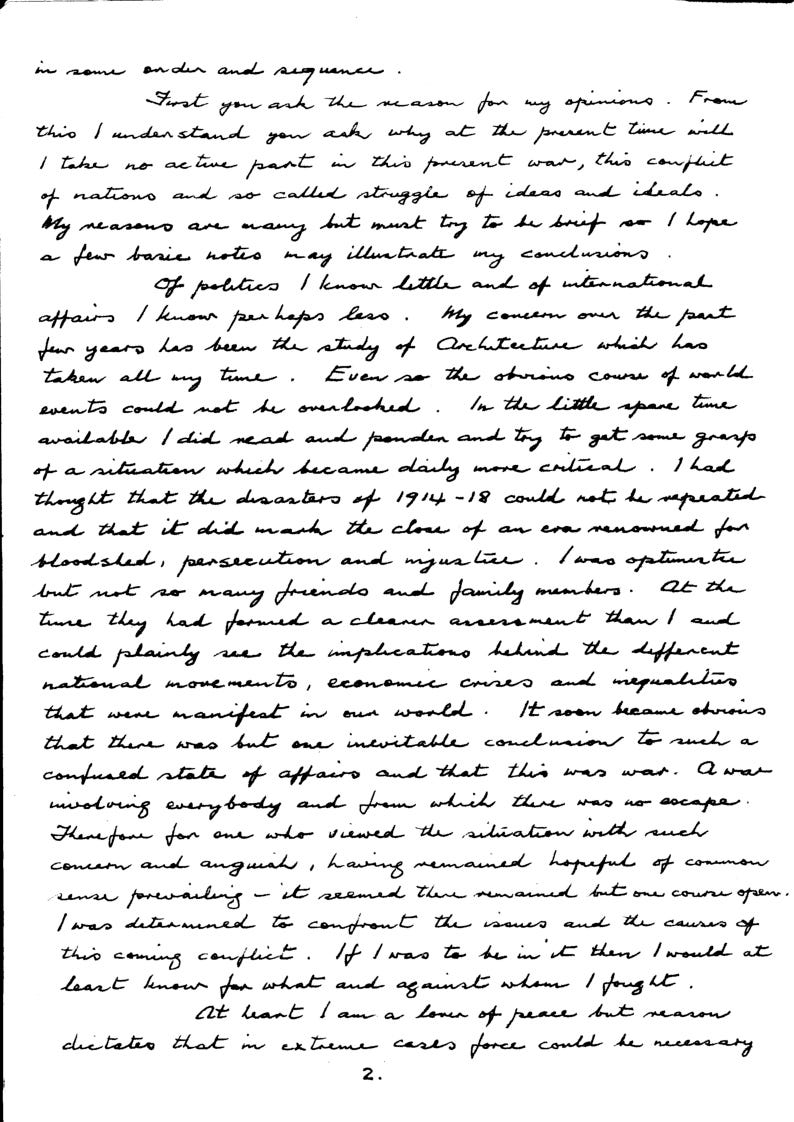 in some order and sequence.
First you ask the reason for my opinions. From
this I understand you ask why at the present time will
I take no active part in this present war, this conflict
of nations and so called struggle of ideas and ideals.
My reasons are many but must try to be brief so I hope
a few basic notes may illustrate my conclusions.
Of politics I know little and of international
affairs I know perhaps less. My concern over the past
few years has been the study of Architecture which has
taken all my time. Even so the obvious course of world
events could not be overlooked. In the little spare time
available I did read and ponder and try to get some grasp
of a situation which became daily more critical. I had
thought that the disasters of 1914-18 could not be repeated
and that it did mark the close of an era renowned for
bloodshed, persecution and injustice. I was optimistic
but not so many friends and family members. At the
time they had formed a clearer assessment than I and
could plainly see the implications behind the different
national movements, economic crises and inequalities
that were manifest in our world. It soon became obvious
that there was but one inevitable conclusion to such a
confused state of affairs and that this was war. A war
involving everybody and from which there was no escape.
Therefore for one who viewed the situation with such
concern and anguish, having remained hopeful of common
sense prevailing - it seemed there remained but one course open.
I was determined to confront the issues and the causes of
this coming conflict. If I was to be in it then I would at
least know for what and against whom I fought.
At heart I am a lover of peace but reason
dictates that in extreme cases force could be necessary
2.